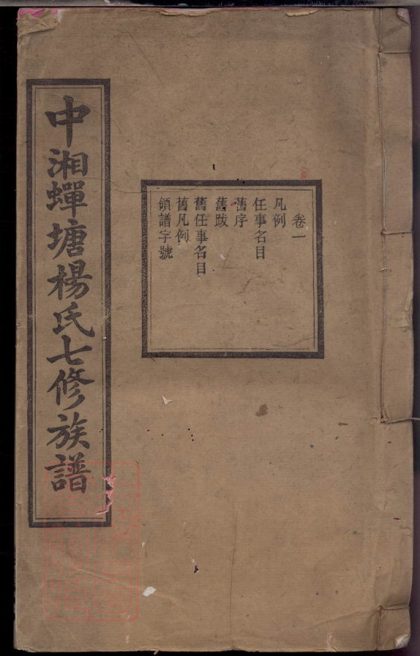 卷一
凡例
任事名目
舊序
舊跋
舊任事名目
舊凡例
領譜字號
中湘蟬塘楊氏七修族譜